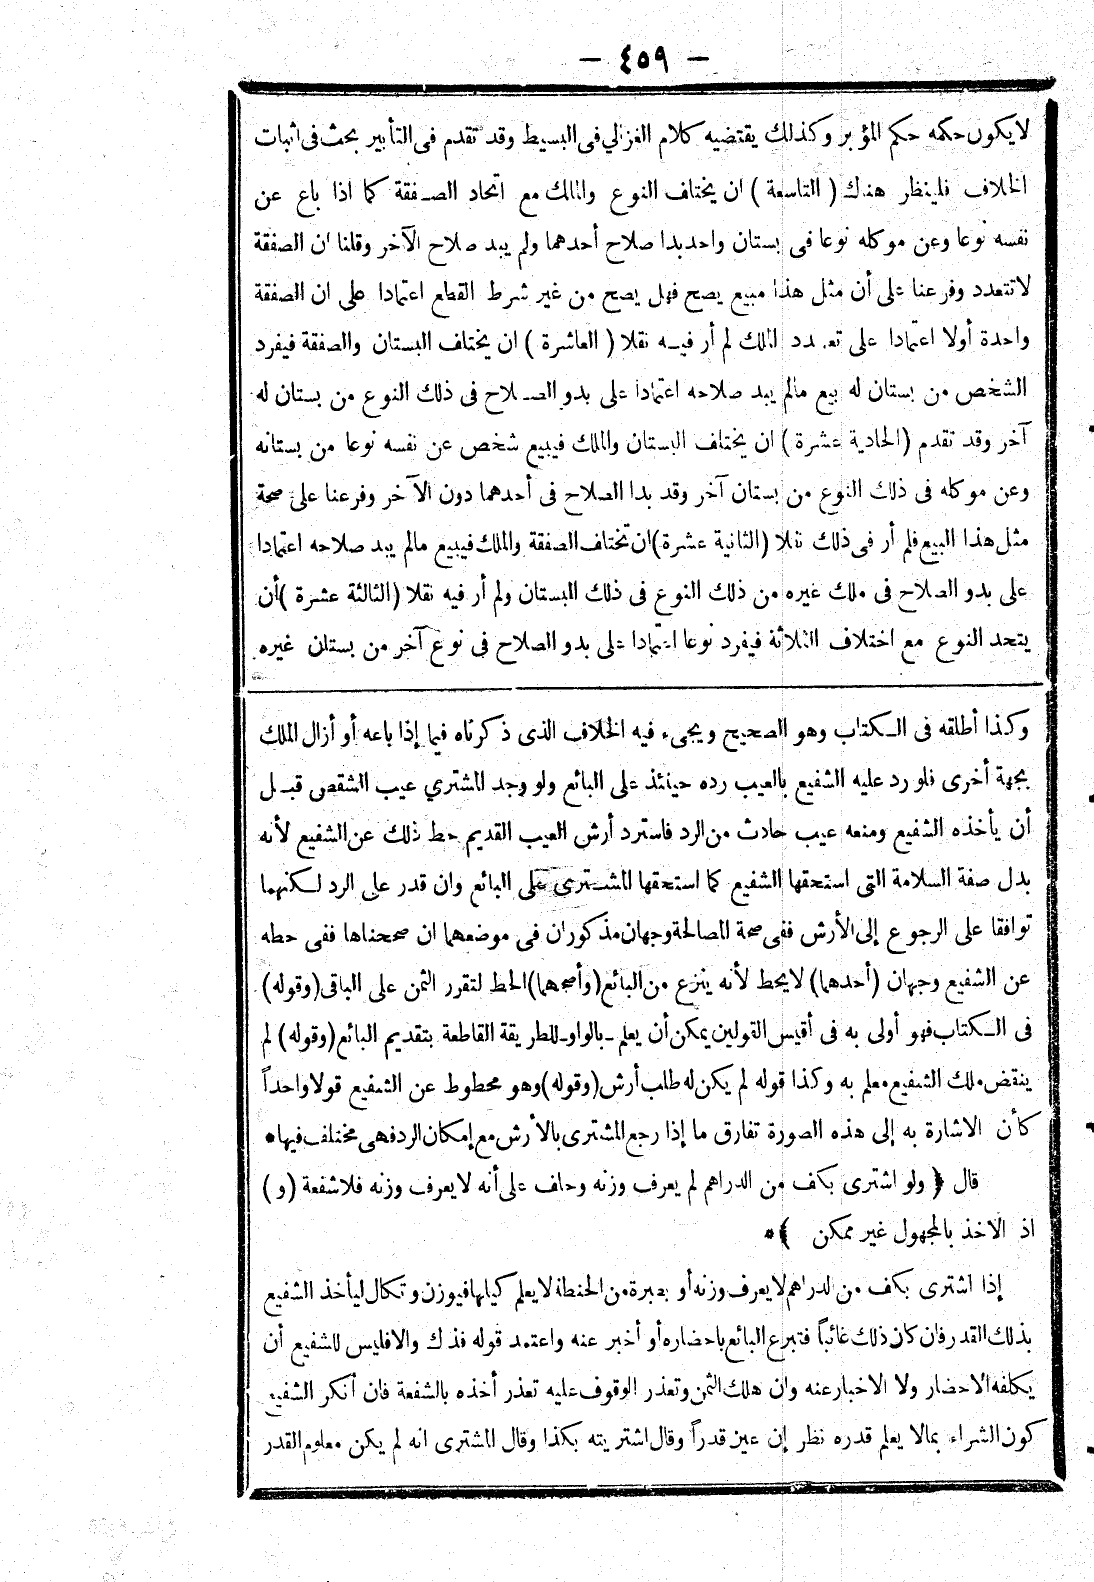 — ٤٥٩ —
لا يكون حكمه حكم المؤبر وكذلك يقتضيه كلام الغزالي فى البسيط وقد تقدم فى التأبير بحث فى اثبات
الخلاف فلينظر هناك ( التاسعة ) ان يختلف النوع والمالك مع اتحاد الصفقة كما اذا باع عن
نفسه نوعا وعن موكله نوعا فى بستان واحد بدا صلاح أحدهما ولم يبد صلاح الآخر وقلنا ان الصفقة
لا تتعدد وفرعنا على أن مثل هذا مبيع يصح فهل يصح من غير شرط القطع اعتمادا على ان الصفقة
واحدة أولا اعتمادا على تعدد المالك لم أر فيه نقلا ( العاشرة ) ان يختلف البستان والصفقة فيفرد
الشخص من بستان له بيع مالم يبد صلاحه اعتمادا على بدو الصلاح فى ذلك النوع من بستان له
آخر وقد تقدم (الحادية عشرة) ان يختلف البستان والملك فيبيع شخص عن نفسه نوعا من بستانه
وعن موكله فى ذلك النوع من بستان آخر وقد بدا الصلاح فى أحدهما دون الآخر وفرعنا على صحة
مثل هذا البيع فلم أر فى ذلك نقلا (الثانية عشرة) ان تختلف الصفقة والملك فيبيع مالم يبد صلاحه اعتمادا
على بدو الصلاح فى ملك غيره من ذلك النوع فى ذلك البستان ولم أر فيه نقلا (الثالثة عشرة) أن
يتحد النوع مع اختلاف الثلاثة فيفرد نوعا اعتمادا على بدو الصلاح فى نوع آخر من بستان غيره
وكذا أطلقه فى الكتاب وهو الصحيح ويجىء فيه الخلاف الذى ذكرناه فيما إذا باعه أو أزال الملك
بجهة أخرى فلو رد عليه الشفيع بالعيب رده حينئذ على البائع ولو وجد المشتري عيب الشقص قبل
أن يأخذه الشفيع ومنعه عيب حادث من الرد فاسترد أرش العيب القديم حط ذلك عن الشفيع لأنه
بدل صفة السلامة التى استحقها الشفيع كما استحقها المشترى على البائع وان قدر على الرد لكنهما
توافقا على الرجوع إلى الأرش ففى صحة المصالحة وجهان مذكوران فى موضعهما ان صححناها ففى حطه
عن الشفيع وجهان (أحدهما) لا يحط لأنه ينزع من البائع (وأصحهما) الحط لتقرر الثمن على الباقى (وقوله)
فى الكتاب فهو أولى به فى أقيس القولين يمكن أن يعلم - بالواو - للطريقة القاطعة بتقديم البائع (وقوله) لم
ينقض ملك الشفيع معلم به وكذا قوله لم يكن له طلب أرش (وقوله) وهو محطوط عن الشفيع قولا واحداً
كأن الاشارة به إلى هذه الصورة تفارق ما إذا رجع المشترى بالأرش مع إمكان الرد فهى مختلف فيها *
قال ﴿ ولو اشترى بكف من الدراهم لم يعرف وزنه وحلف على أنه لا يعرف وزنه فلا شفعة (و)
اذ الاخذ بالمجهول غير ممكن ﴾ *
إذا اشترى بكف من الدراهم لا يعرف وزنه أو بصبرة من الحنطة لا يعلم كيلها فيوزن وتكال ليأخذ الشفيع
بذلك القدر فان كان ذلك غائباً فتبرع البائع باحضاره أو أخبر عنه واعتمد قوله فذك والا فليس للشفيع أن
يكلفه الاحضار ولا الاخبار عنه وان هلك الثمن وتعذر الوقوف عليه تعذر أخذه بالشفعة فان أنكر الشفيع
كون الشراء بمالا يعلم قدره نظر إن عين قدراً وقال اشتريته بكذا وقال المشترى انه لم يكن معلوم القدر